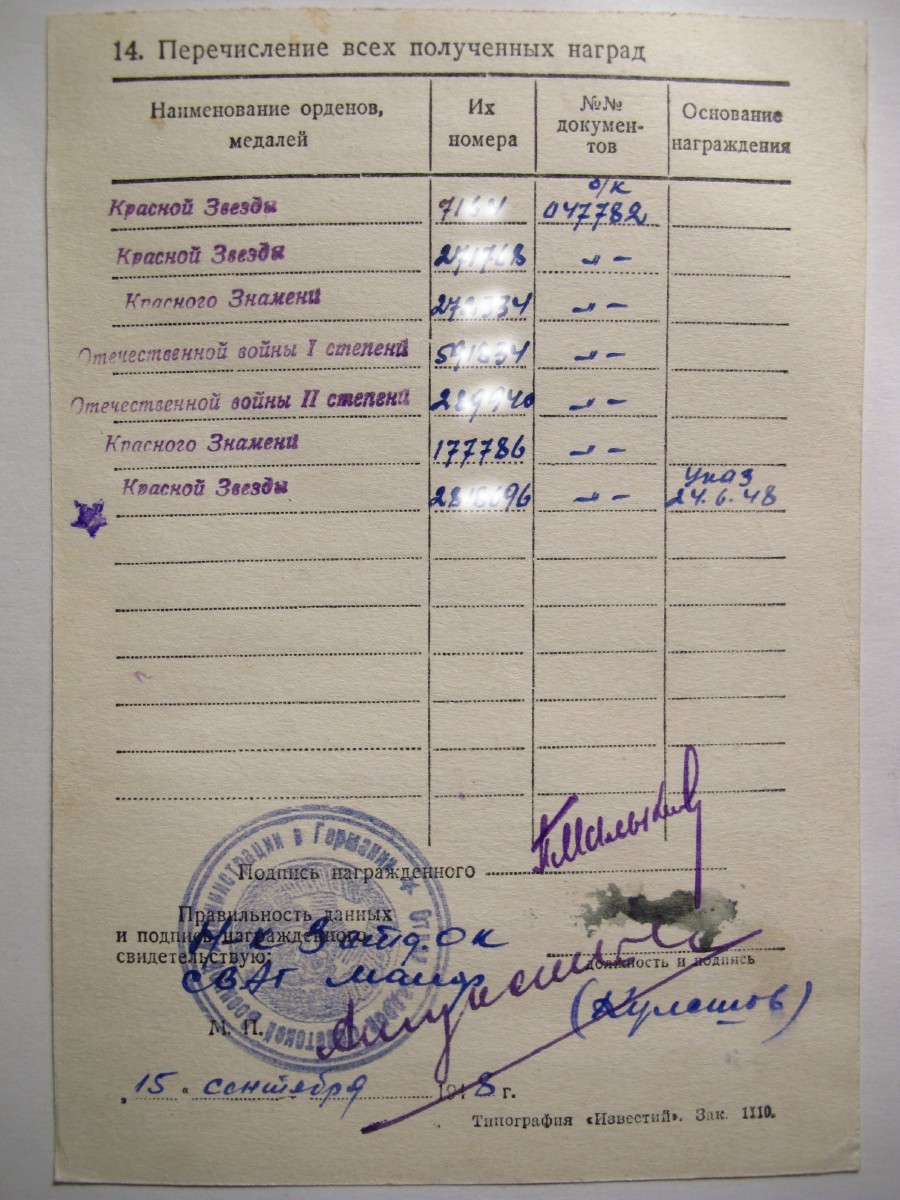 14. Перечисление всех полученных наград
Наименование орденов, медалей Их номера №№ докумен-тов Основание награждения
о/к
Красной Звезды 047782
Красной Звезды -"-
Красного Знамени -"-
Отечественной войны I степени -"-
Отечественной войны II степени -"-
Красного Знамени 177786 -"-
Указ
Красной Звезды -"- 24.6.48
Подпись награжденного
Правильность данных
и подпись награжденного
свидетельствую:
Н-к 3 отд. ОК
СВАГ майор
должность и подпись
(Кулешов)
М. П.
министрации в Германии
„15“ сентября 1948 г.
Типография «Известий». Зак. 1110.